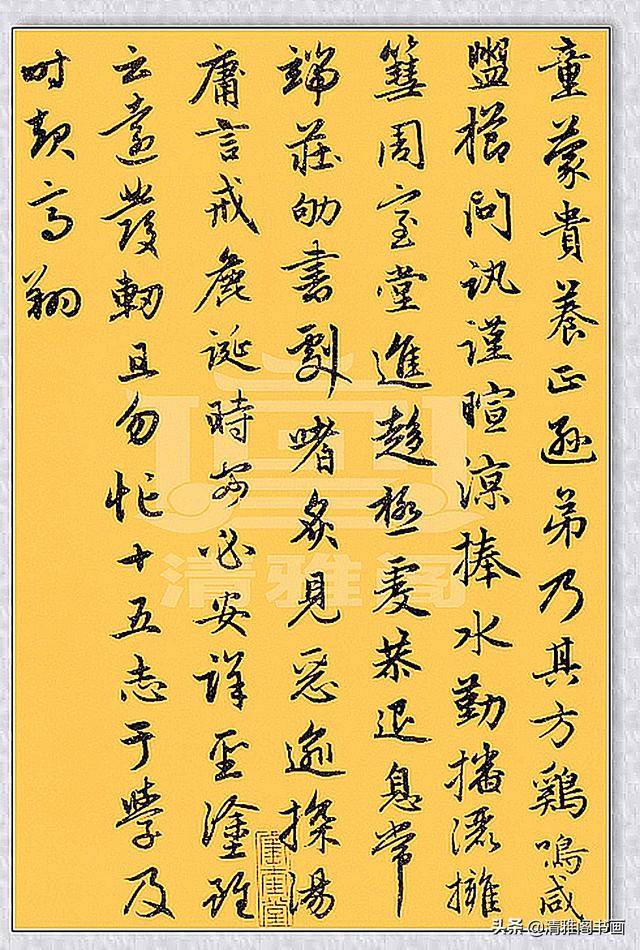 童蒙貴養正遜弟乃其方鷄鳴咸
盥櫛問訊謹暄涼捧水勤播灑擁
篲周室堂進趨極虔恭退息常
端莊劬書劇嗜炙見惡逾探湯
庸言戒麁誕時必安詳聖塗雖
云遠發軔且勿忙十五志于學及
時高翔
清雅阁
头条 @清雅阁书画